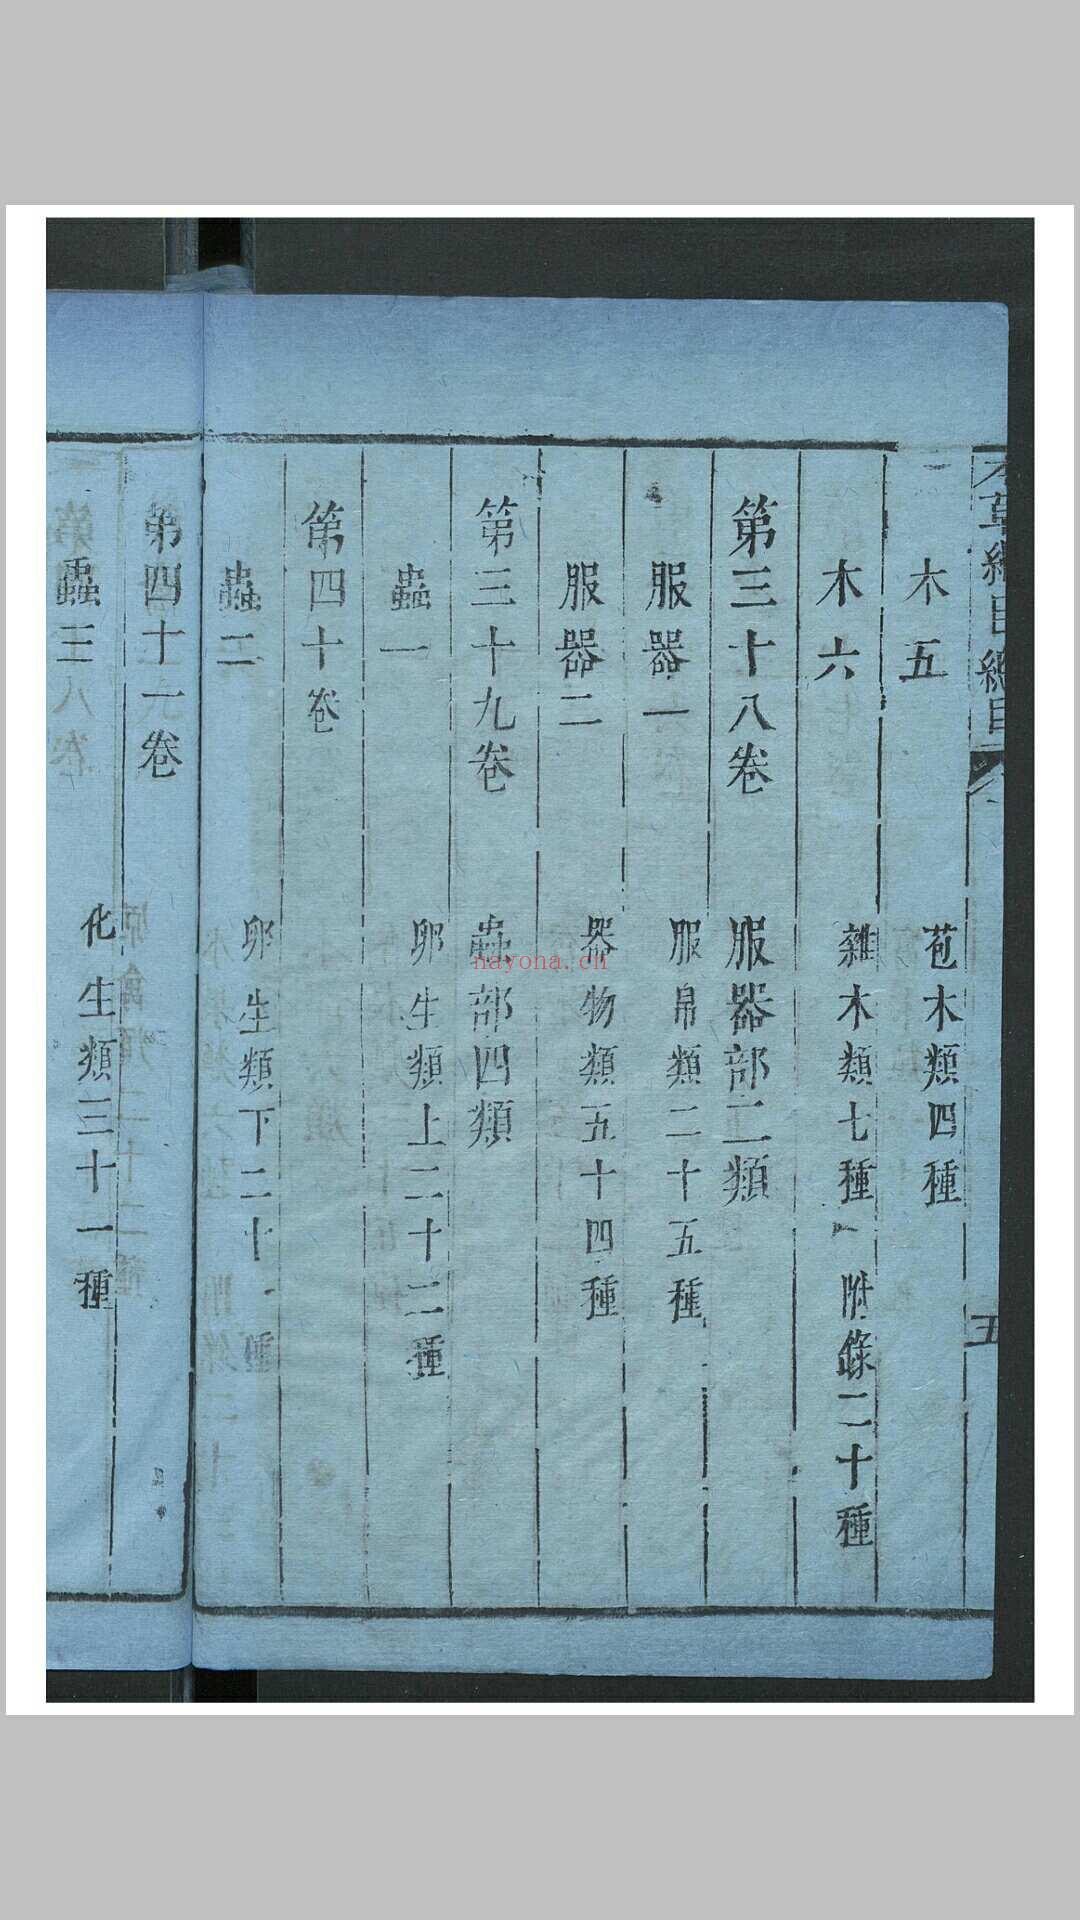 本草綱目總目
五
木五 苞木類四種
木六 雜木類七種 附錄二十種
第三十八卷 服器部二類
服器一 服帛類二十五種
服器二 器物類五十四種
第三十九卷 蟲部四類
蟲一 卵生類上二十二種
第四十卷
蟲二 卵生類下二十一種
第四十一卷
蟲三 化生類三十一種
nayona.cn